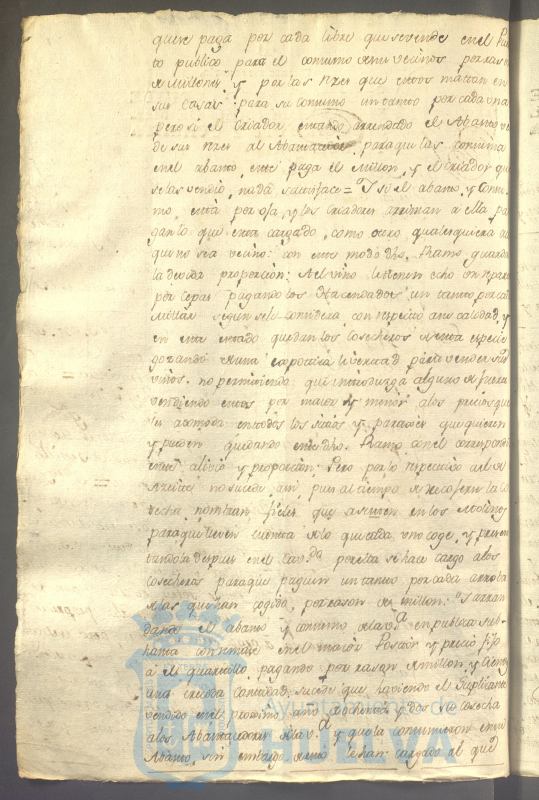 quese paga por cada libra que se vende en el Pues
to publico para el consumo de sus vecinos por razon
de Millones, y por las reses que estos matan en
sus casas para su consumo un tanto por cada una
pero si el Criador estando arrendado el Abasto ve
de sus reses al Abastecedor para que las consuma
en el abasto, este paga el Millon, y el criador que
se las vendio, nada satisface = Y si el abasto, y Consu
mo, està por oja, y los Criadores arriman a ella pa
gan lo que està cargado, como otro qualesquiera a
qui no sea vecino: con este modo dho. Ramo guarda
la devida proporcion: Al vino le tienen echo un repart
por cepas pagando los Hacendados un tanto por cada
Millar segun se le considera con respecto a su calidad, y
en este estado quedan los cosecheros de esta especie
gozando de una espotica libertad para vender sus
vinos, no permitiendo que introduzga alguno de fuera
vendiendo estos por maior y menor a los precios que
les acomoda en todos los sitios y parages que quieren
y pueden quedando este dho. Ramo con el correspondi
ente alivio y proporcion: Pero por lo respectivo al de
Azeite no sucede asi, pues al tiempo de recoserse la co
secha nombran fieles que asisten en los Molinos
para que lleven cuenta de lo que cada uno coge, y presen
tandola despues en el Cav.do por esta se hace cargo a los
Cosecheros para que paguen un tanto por cada arroba
de las que han cogido, por razon de millon: Y arran
dado el abasto y consumo de la v.a en publica sub
hasta con remate en el maior Postor y precio fijo
a el quartillo, pagando por razon de millon, y cientos
una crecida Cantidad, sucede que haviendo el Suplicante
vendido en el proximo año de ochenta y dos su cosecha
a los Abastecedores de la v.a y que la consumieron en su
Abasto, sin embargo de esto le han cargado al que
Ayuntamiento de
HUELVA